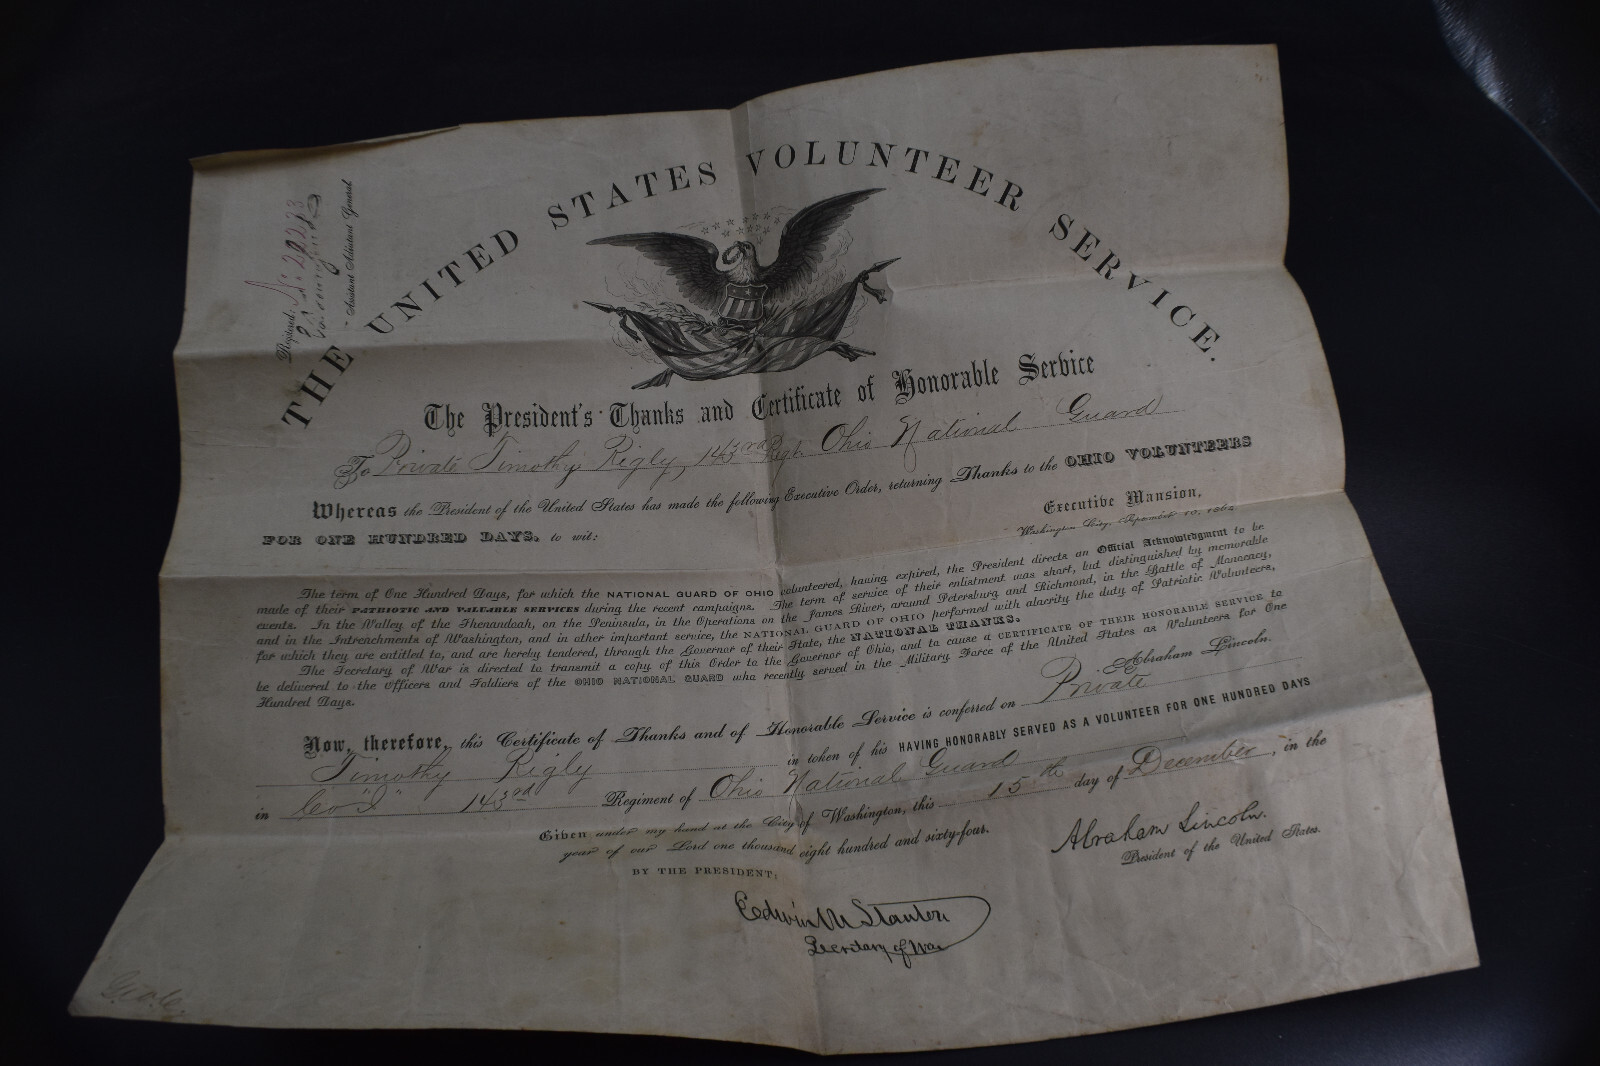 THE UNITED STATES VOLUNTEER SERVICE.
Registered, No. 22273
Assistant Adjutant General
The President's Thanks and Certificate of Honorable Service
To Private Timothy Rigly, 143rd Regt. Ohio National Guard
Whereas the President of the United States has made the following Executive Order, returning Thanks to the OHIO VOLUNTEERS
FOR ONE HUNDRED DAYS, to wit:
Executive Mansion,
Washington City, September 10, 1864
The term of One Hundred Days, for which the NATIONAL GUARD OF OHIO volunteered, having expired, the President directs an Official Acknowledgment to be
made of their PATRIOTIC AND VALUABLE SERVICES during the recent campaigns. The term of service of their enlistment was short, but distinguished by memorable
events. In the Valley of the Shenandoah, on the Peninsula, in the Operations on the James River, around Petersburg and Richmond, in the Battle of Monocacy,
and in the Intrenchments of Washington, and in other important service, the NATIONAL GUARD OF OHIO performed with alacrity the duty of Patriotic Volunteers,
for which they are entitled to, and are hereby tendered, through the Governor of their State, the NATIONAL THANKS.
The Secretary of War is directed to transmit a copy of this Order to the Governor of Ohio, and to cause a CERTIFICATE OF THEIR HONORABLE SERVICE to
be delivered to the Officers and Soldiers of the OHIO NATIONAL GUARD who recently served in the Military Force of the United States as Volunteers for One
Hundred Days.
Abraham Lincoln.
Now, therefore, this Certificate of Thanks and of Honorable Service is conferred on Private
Timothy Rigly in token of his HAVING HONORABLY SERVED AS A VOLUNTEER FOR ONE HUNDRED DAYS
in Co "I" 143rd Regiment of Ohio National Guard
Given under my hand at the City of Washington, this 15th day of December, in the
year of our Lord one thousand eight hundred and sixty-four.
Abraham Lincoln.
President of the United States.
BY THE PRESIDENT:
Edwin M Stanton
Secretary of War